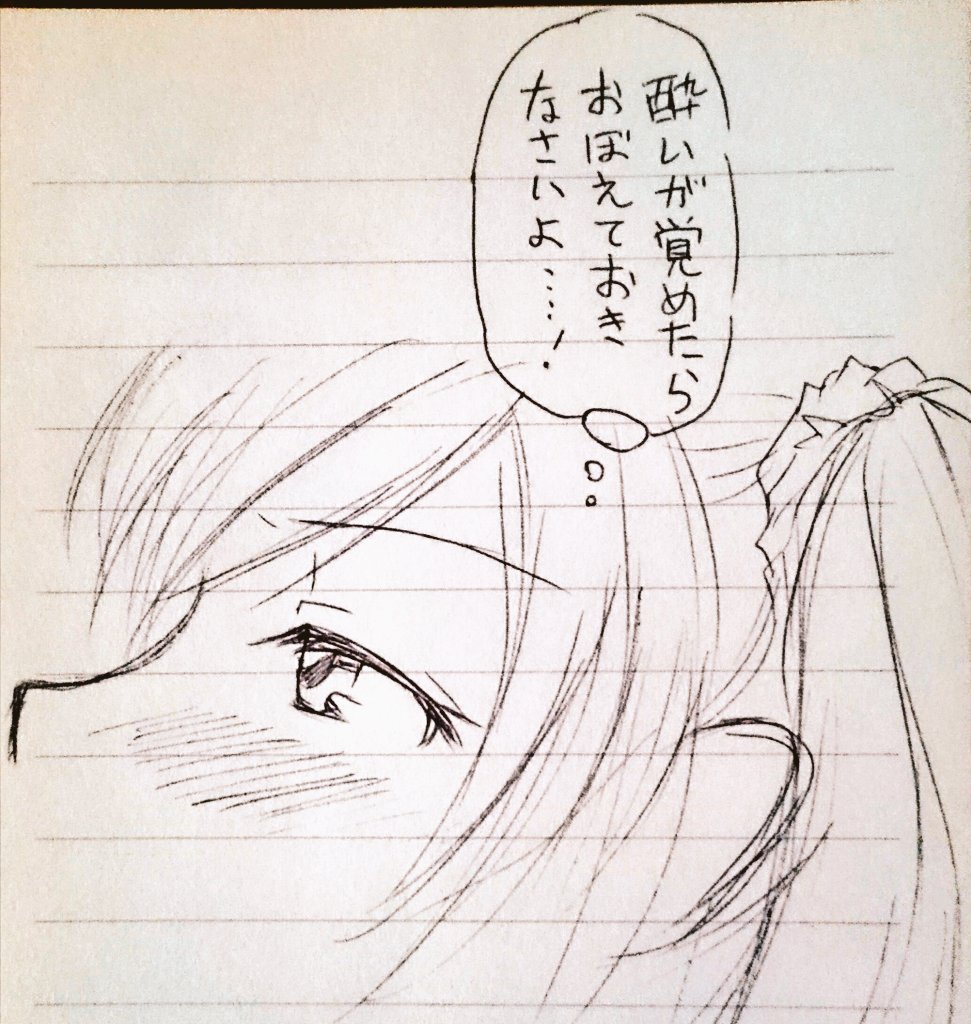 酔いが覚めたら
おぼえておき
なさいよ……!